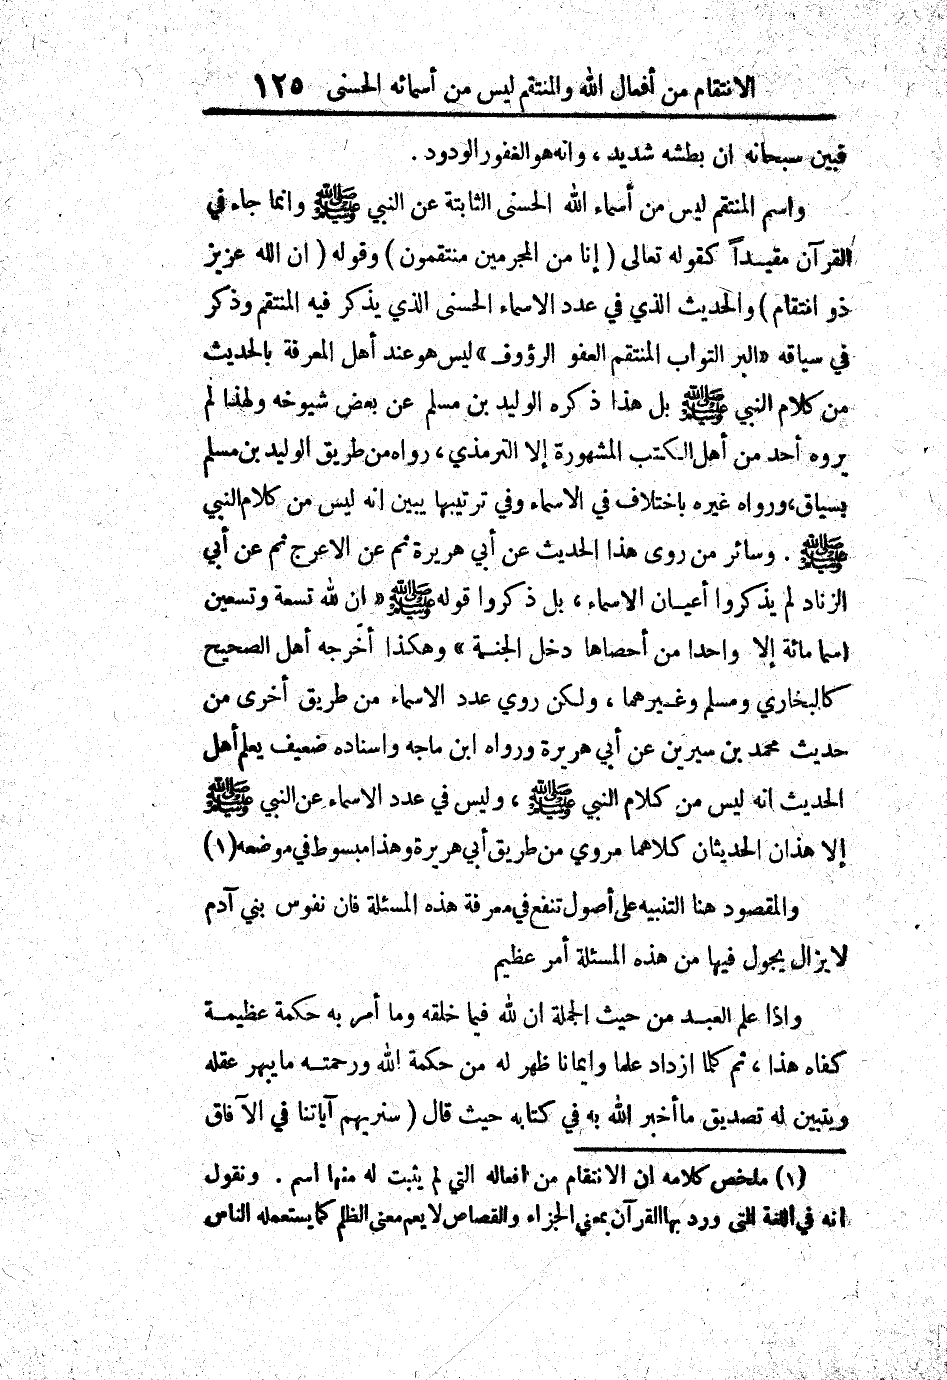 الانتقام من أفعال الله والمنتقم ليس من أسمائه الحسنى ١٢٥
فبين سبحانه ان بطشه شديد ، وانه هو الغفور الودود .
واسم المنتقم ليس من أسماء الله الحسنى الثابتة عن النبي ﷺ وانما جاء في
القرآن مقيداً كقوله تعالى ( إنا من المجرمين منتقمون ) وقوله ( ان الله عزيز
ذو انتقام ) والحديث الذي في عدد الاسماء الحسنى الذي يذكر فيه المنتقم وذكر
في سياقه «البر التواب المنتقم العفو الرؤوف» ليس هو عند أهل المعرفة بالحديث
من كلام النبي ﷺ بل هذا ذكره الوليد بن مسلم عن بعض شيوخه ولهذا لم
يروه أحد من أهل الكتب المشهورة إلا الترمذي ، رواه من طريق الوليد بن مسلم
بسياق، ورواه غيره باختلاف في الاسماء وفي ترتيبها يبين انه ليس من كلام النبي
ﷺ . وسائر من روى هذا الحديث عن أبي هريرة ثم عن الاعرج ثم عن أبي
الزناد لم يذكروا أعيان الاسماء ، بل ذكروا قوله ﷺ « ان لله تسعة وتسعين
اسما مائة إلا واحدا من أحصاها دخل الجنة » وهكذا أخرجه أهل الصحيح
كالبخاري ومسلم وغيرهما ، ولكن روي عدد الاسماء من طريق أخرى من
حديث محمد بن سيرين عن أبي هريرة ورواه ابن ماجه واسناده ضعيف يعلم أهل
الحديث انه ليس من كلام النبي ﷺ ، وليس في عدد الاسماء عن النبي ﷺ
إلا هذان الحديثان كلاهما مروي من طريق أبي هريرة وهذا مبسوط في موضعه (١)
والمقصود هنا التنبيه على أصول تنفع في معرفة هذه المسئلة فان نفوس بني آدم
لا يزال يجول فيها من هذه المسئلة أمر عظيم
واذا علم العبد من حيث الجملة ان لله فيما خلقه وما أمر به حكمة عظيمة
كفاه هذا ، ثم كلما ازداد علما وايمانا ظهر له من حكمة الله ورحمته ما يبهر عقله
ويتبين له تصديق ما أخبر الله به في كتابه حيث قال ( سنريهم آياتنا في الآفاق
(١) ملخص كلامه ان الانتقام من افعاله التي لم يثبت له منها اسم . ونقول
انه في اللغة التي ورد بها القرآن بمعنى الجزاء والقصاص لا يعم معنى الظلم كما يستعمله الناس